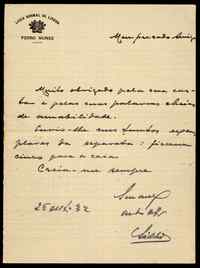 LICEU NORMAL DE LISBOA
PEDRO NUNES
Meu prezado Amigo
Muito obrigado pela sua car-
ta e pelas suas palavras cheias
de amabilidade.
Envio-lhe uns tantos exem-
plares da separata; ficaram
cinco para a casa
Creia-me sempre
25
32